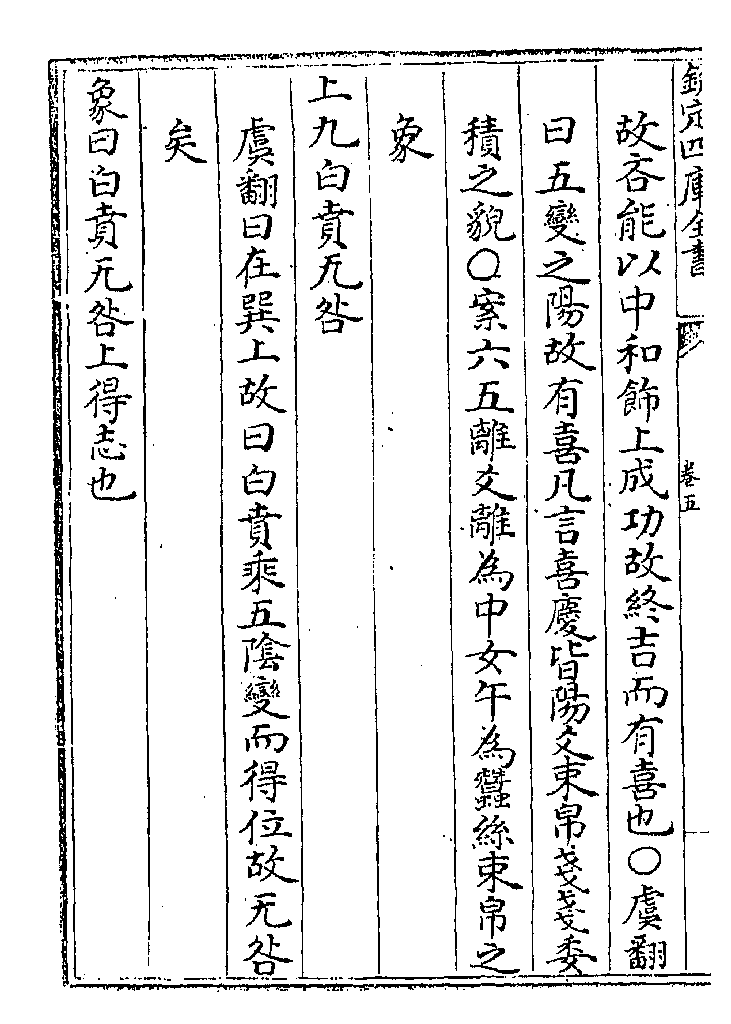 欽定四庫全書
卷五
故吝能以中和飾上成功故終吉而有喜也〇虞翻
曰五變之陽故有喜凡言喜慶皆陽爻束帛戔戔委
積之貌〇案六五離爻離為中女午為蠶絲束帛之
象
上九白賁无咎
虞翻曰在巽上故曰白賁乘五陰變而得位故无咎
矣
象曰白賁无咎上得志也